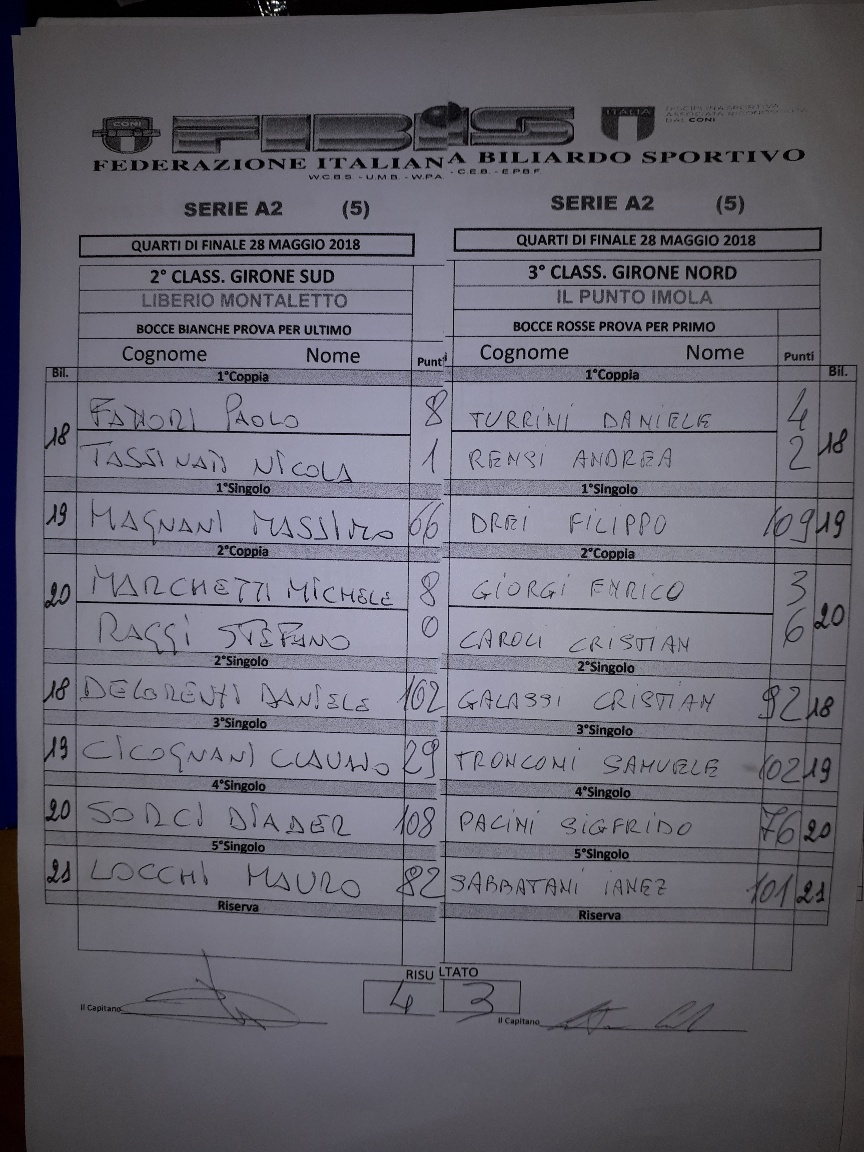 CONI
FIBIS
ITALIA
DISCIPLINA SPORTIVA
ASSOCIATA RICONOSCIUTA
DAL CONI
FEDERAZIONE ITALIANA BILIARDO SPORTIVO
W.C.B.S. - U.M.B. - W.P.A. - C.E.B. - E.P.B.F.
SERIE A2 (5) SERIE A2 (5)
QUARTI DI FINALE 28 MAGGIO 2018 QUARTI DI FINALE 28 MAGGIO 2018
2° CLASS. GIRONE SUD 3° CLASS. GIRONE NORD
LIBERIO MONTALETTO IL PUNTO IMOLA
BOCCE BIANCHE PROVA PER ULTIMO BOCCE ROSSE PROVA PER PRIMO
Cognome Nome Punti Cognome Nome Punti
Bil. 1°Coppia 1°Coppia Bil.
18 PAOLO 8 TURRINI DANIELE 4 18
TASSINARI NICOLA 1 RENSI ANDREA 2
1°Singolo 1°Singolo
19 MAGNANI MASSIMO 66 DREI FILIPPO 109 19
2°Coppia 2°Coppia
20 MARCHETTI MICHELE 8 GIORGI ENRICO 3 20
RAGGI STEFANO 0 CAROLI CRISTIAN 6
2°Singolo 2°Singolo
18 DELORENTI DANIELE 102 GALASSI CRISTIAN 92 18
3°Singolo 3°Singolo
19 CICOGNANI CLAUDIO 29 TRONCONI SAMUELE 102 19
4°Singolo 4°Singolo
20 SORCI DIADER 108 PACINI SIGFRIDO 76 20
5°Singolo 5°Singolo
21 LOCCHI MAURO 82 SABBATANI IANEZ 101 21
Riserva Riserva
RISULTATO
4 3
Il Capitano Il Capitano